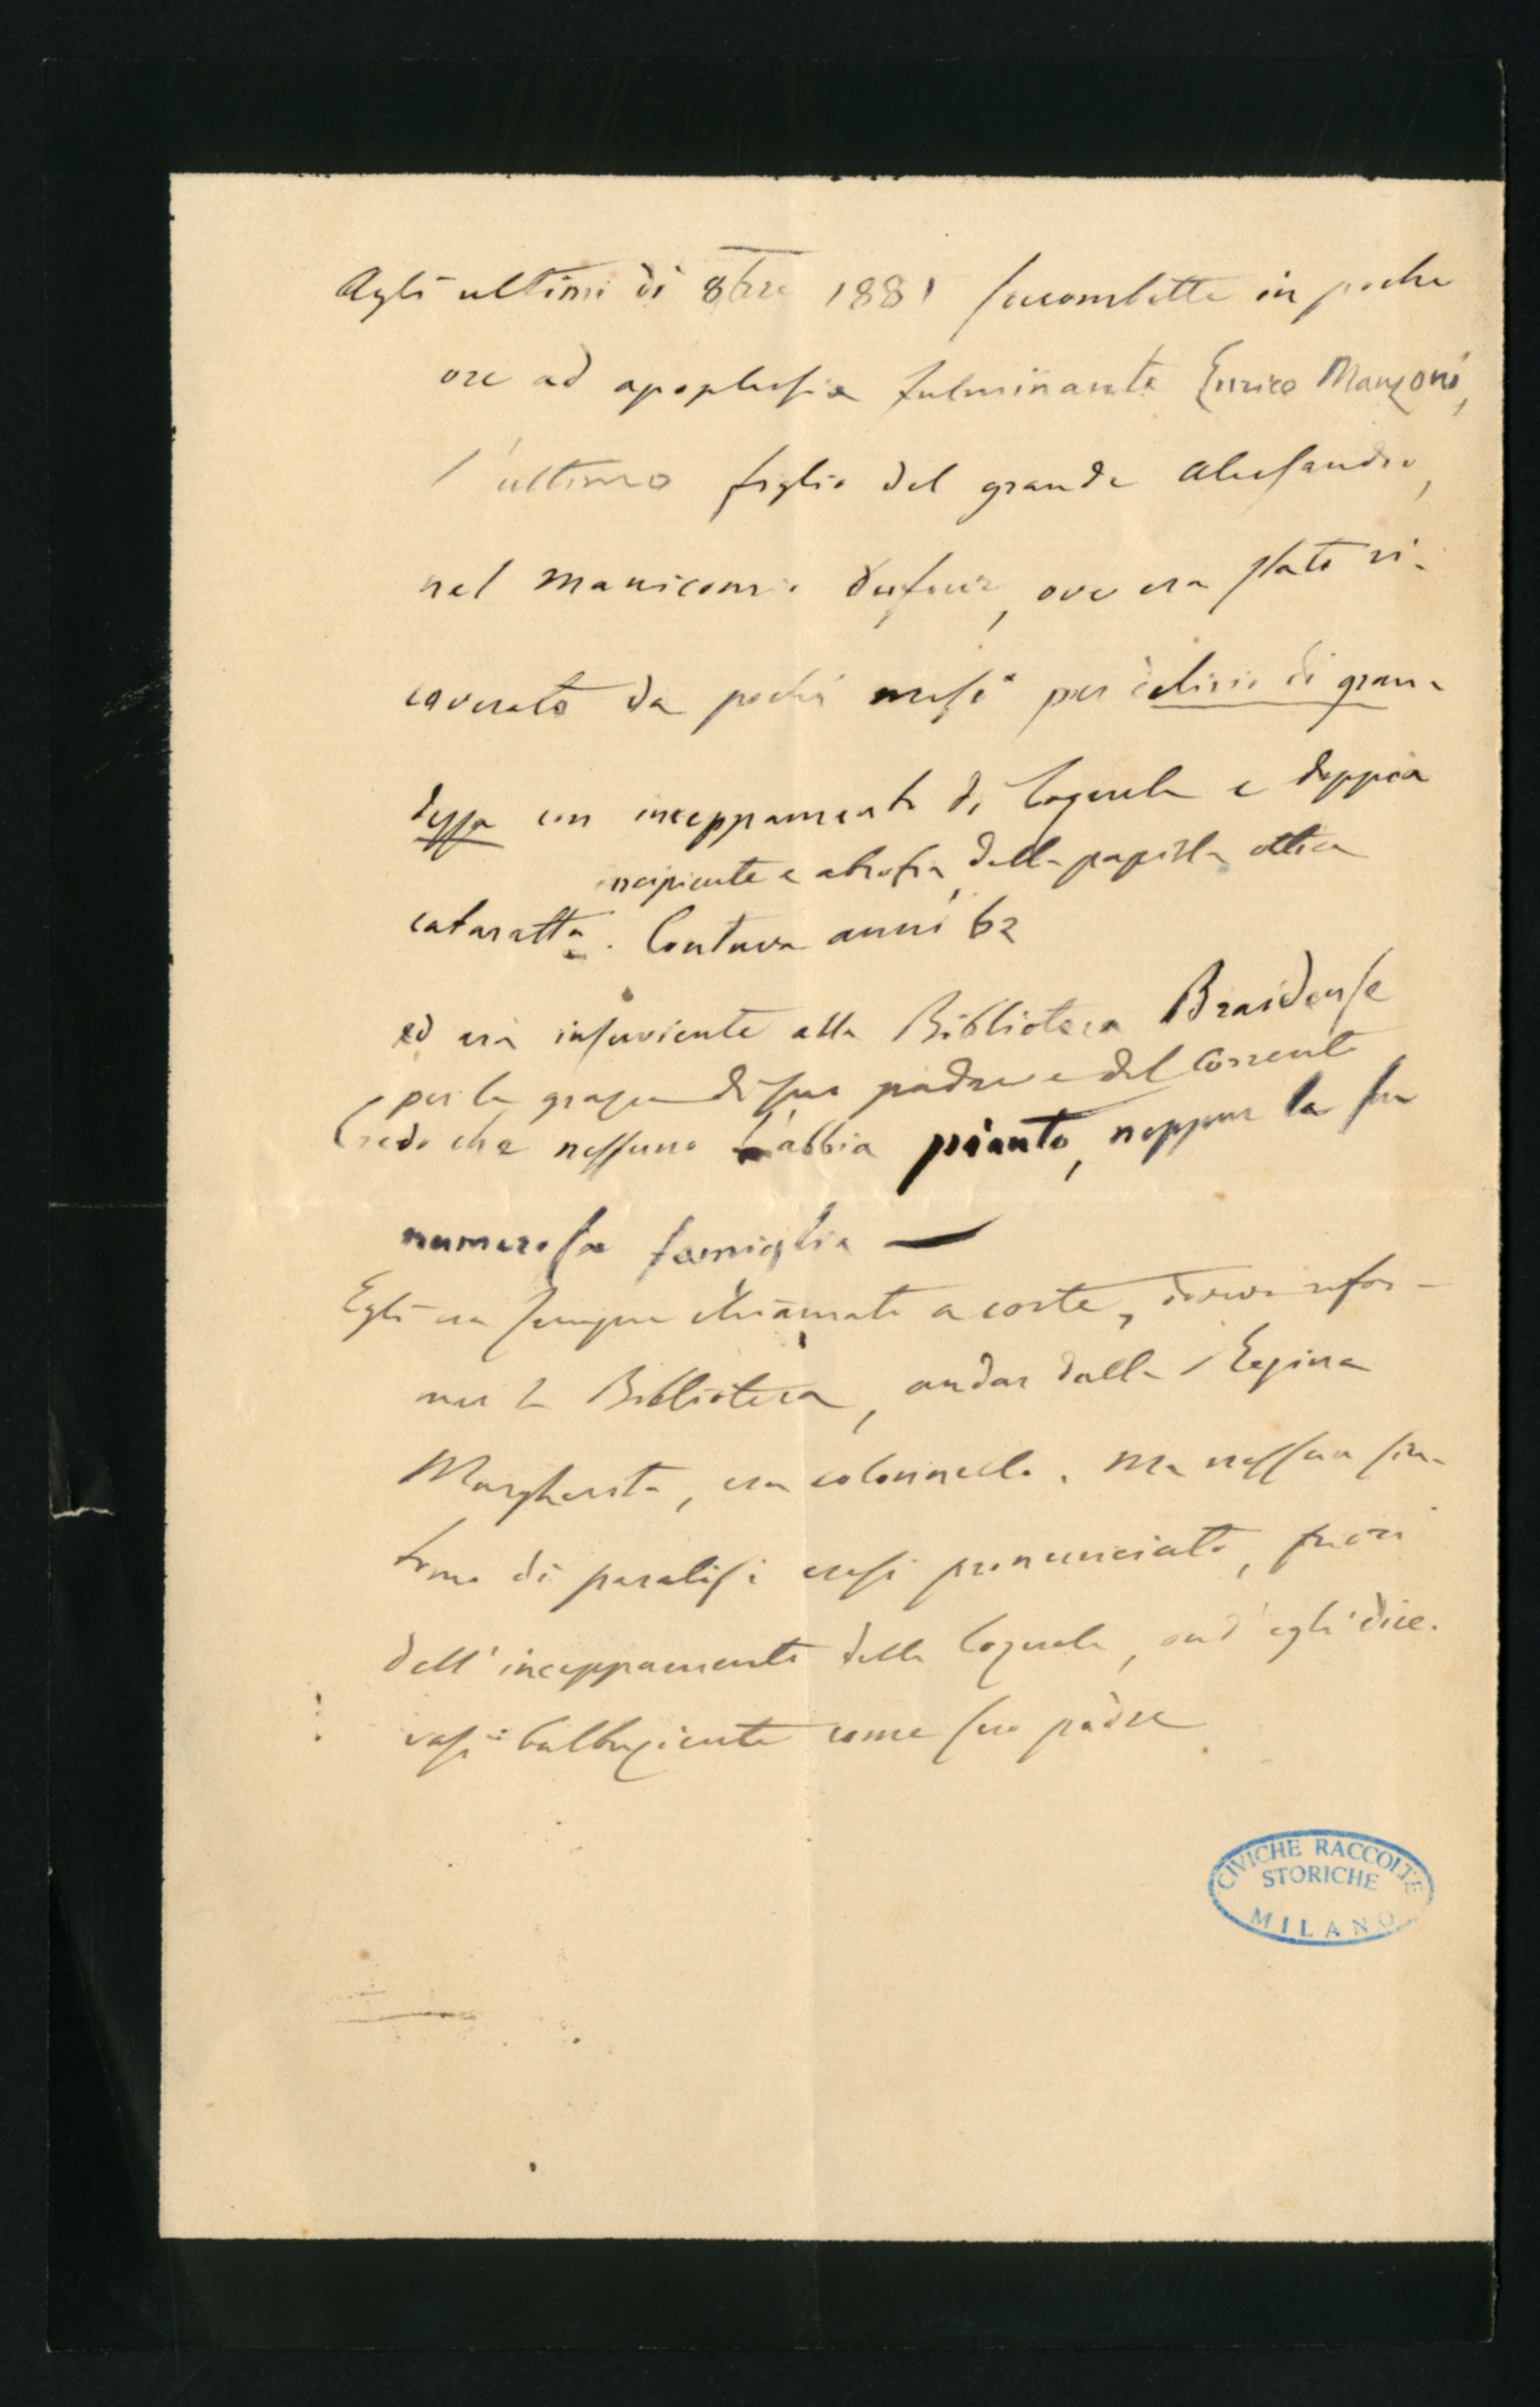 Agli ultimi di 8bre 1881 soccombette in poche
ore ad apoplessia fulminante Enrico Manzoni,
l'ultimo figlio del grande Alessandro,
nel manicomio Dufour, ove era stato ri-
coverato da pochi mesi per delirio di gran-
dezza con inceppamento di loquela e doppia
incipiente e atrofia della papilla ottica
cataratta. Contava anni 62
ed era inserviente alla Biblioteca Braidense
per la grazia di suo padre e del Correnti
Credo che nessuno l'abbia pianto, neppur la sua
numerosa famiglia —
Egli era sempre chiamato a corte, doveva rifor-
mar la Biblioteca, andar dalla Regina
Margherita, era colonnello. Ma nessun sin-
tomo di paralisi erasi pronunciato, fuori
dell'inceppamento della loquela, ond'egli dice-
vasi balbuziente come suo padre
CIVICHE RACCOLTE
STORICHE
MILANO